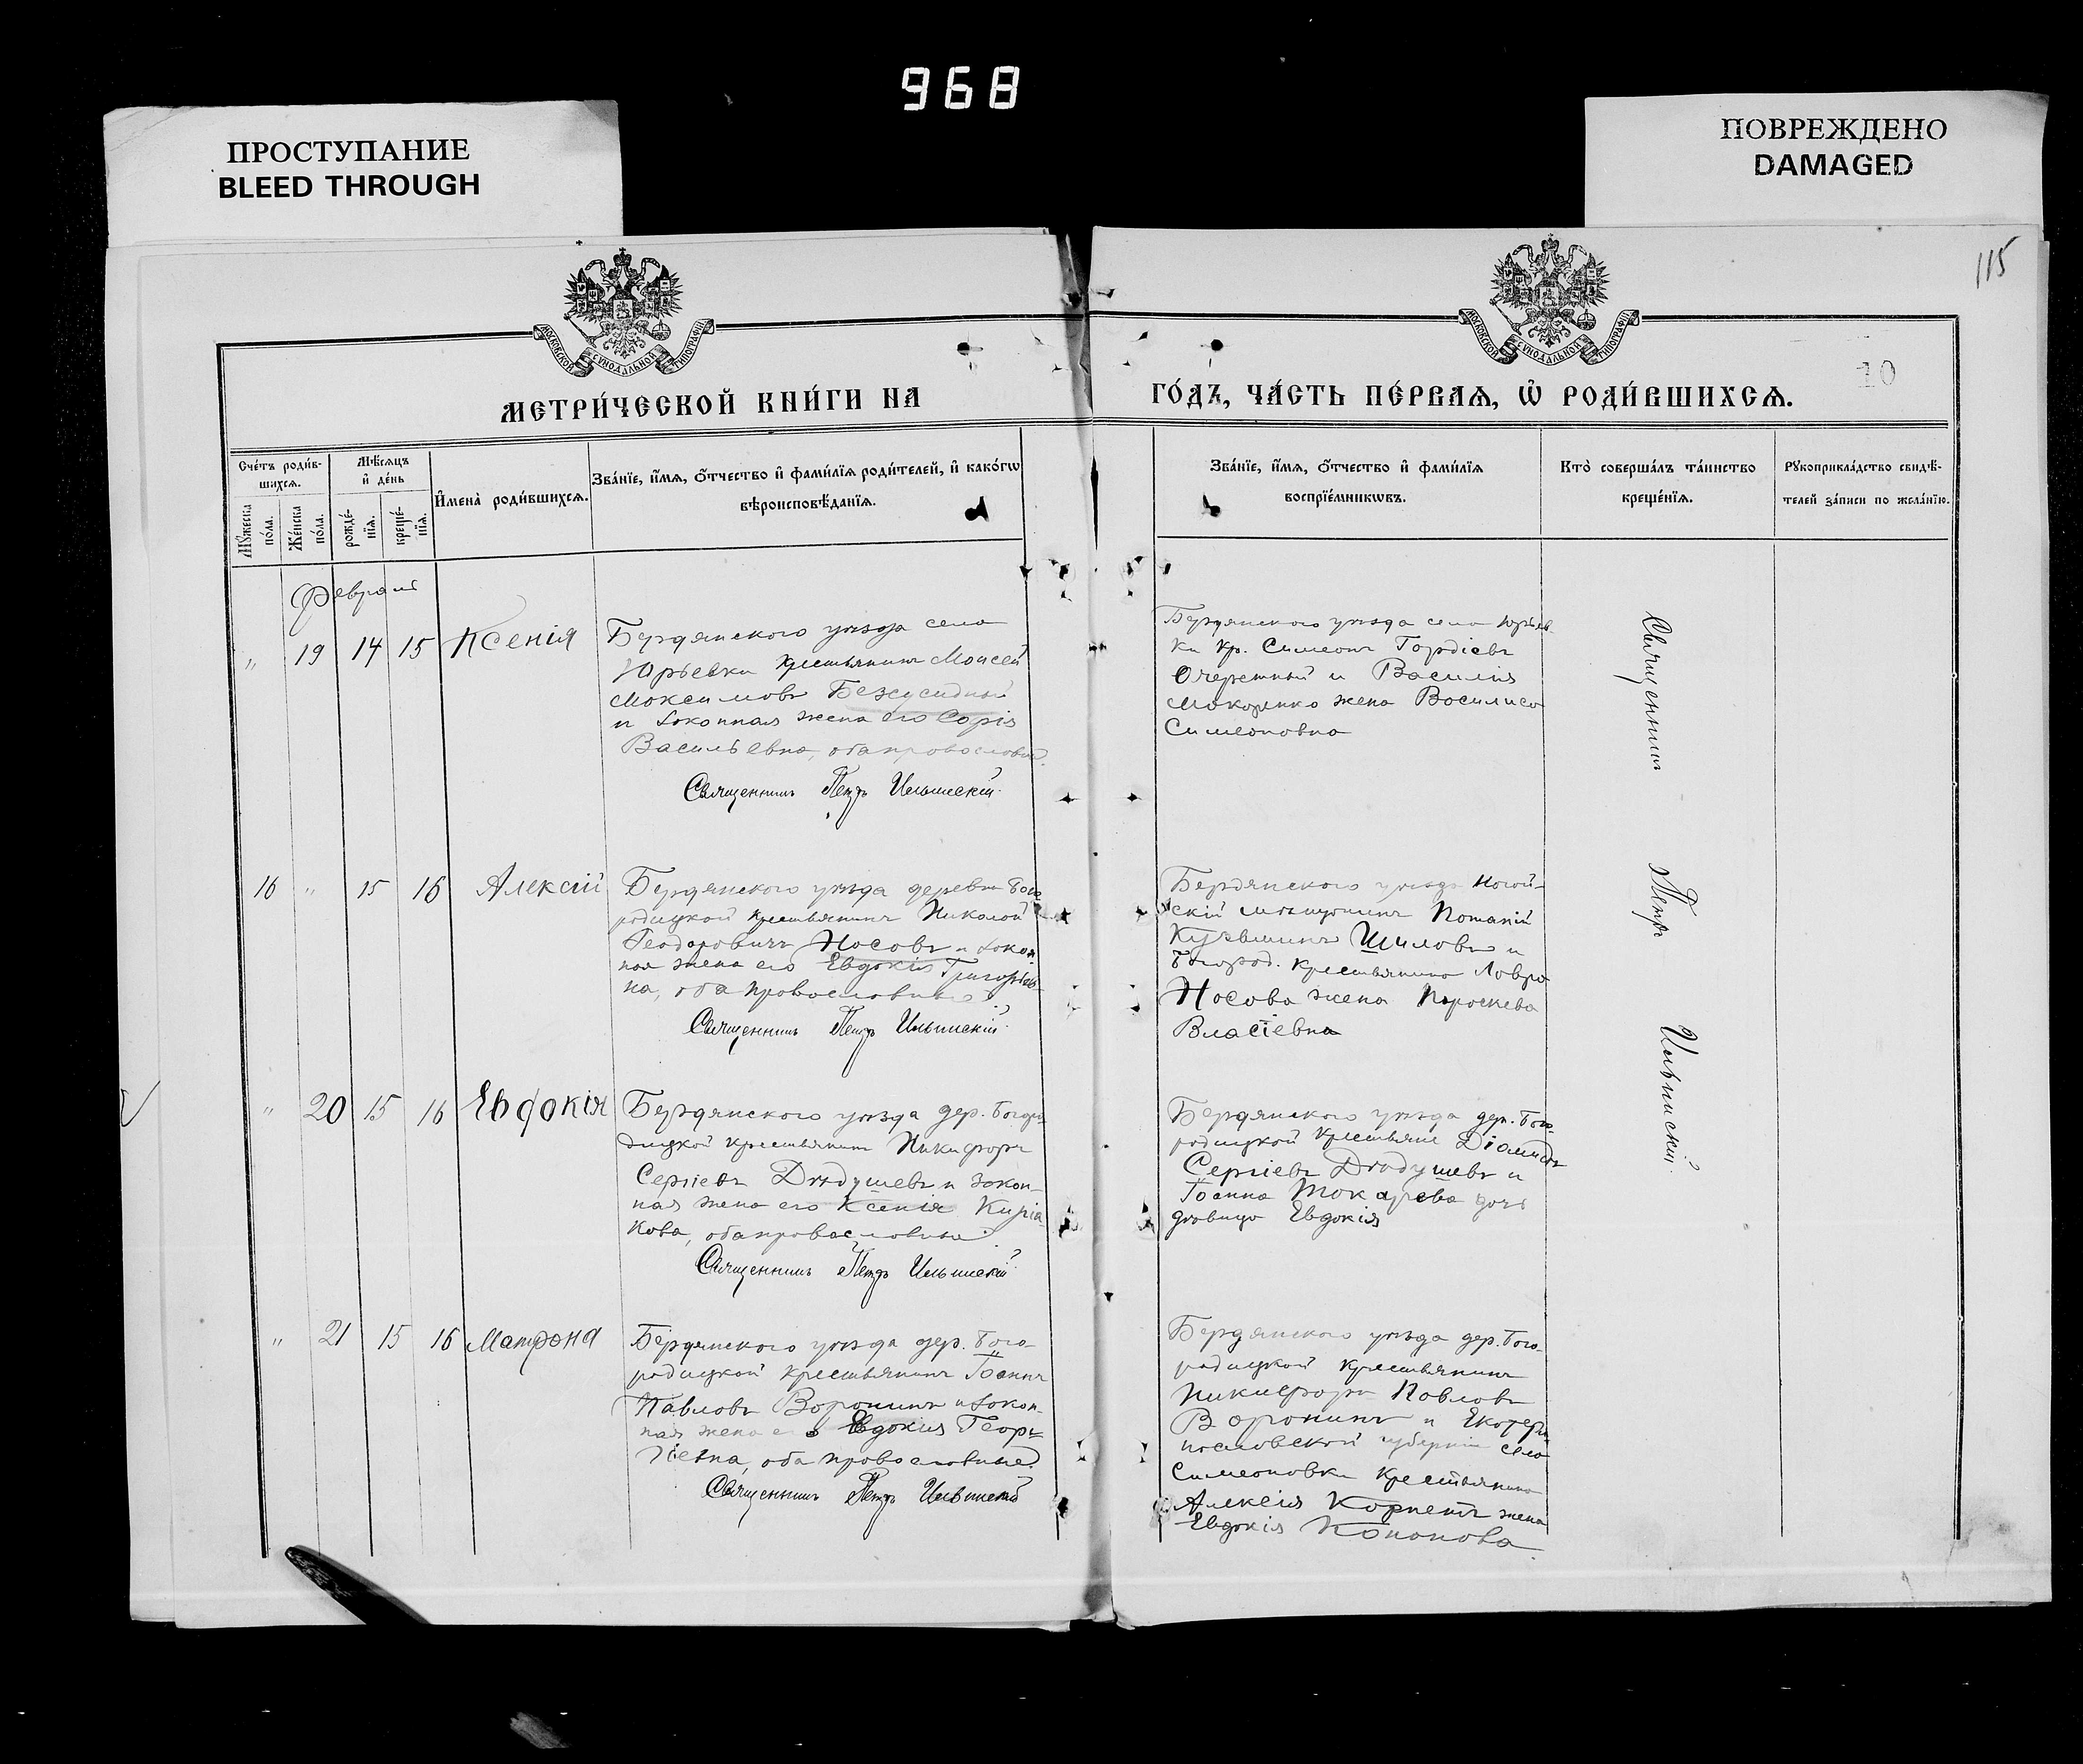 968
ПРОСТУПАНИЕ
BLEED THROUGH
ПОВРЕЖДЕНО
DAMAGED
115
МОСКОВСКОЙ СѴНОДАЛЬНОЙ ТИПОГРАФІИ
МОСКОВСКОЙ СѴНОДАЛЬНОЙ ТИПОГРАФІИ
10
МЕТРИ́ЧЕСКОЙ КНИ́ГИ НА
ГО́ДЪ, ЧА́СТЬ ПЕ́РВАѦ, Ѡ҆ РОДИ́ВШИХСѦ.
Сче́тъ роди́в-
шихсѧ.
Мѣ́сѧцъ
и҆ де́нь
Мꙋ́жеска
по́ла.
Же́нска
по́ла.
рожде́-
нїѧ.
креще́-
нїѧ.
И҆мена̀ роди́вшихсѧ.
Зва́нїе, и҆́мѧ, ѻ҆́тчество и҆ фами́лїѧ роди́телей, и҆ како́гѡ
вѣроисповѣ́данїѧ.
Зва́нїе, и҆́мѧ, ѻ҆́тчество и҆ фами́лїѧ
воспрїе́мникѡвъ.
Кто̀ соверша́лъ та́инство
креще́нїѧ.
Рꙋкоприкла́дство свидѣ́-
телей за́писи по жела́нїю.
Февраль
" 19 14 15 Ксенія
Бердянскаго уѣзда села
Юрьевки крестьянинъ Моисей
Максимовъ Безусидный
и законная жена его Софія
Васильевна, оба православн.
Священникъ Петръ Ильинскій.
Бердянскаго уѣзда села Юрьев-
ки кр. Симеонъ Гордіевъ
Очеретный и Василія
Макаренко жена Василиса
Симеоновна
16 " 15 16 Алексій
Бердянскаго уѣзда деревни Бого-
родицкой крестьянинъ Николай
Ѳеодоровичъ Носовъ и закон-
ная жена его Евдокія Григорьев-
на, оба православные.
Священникъ Петръ Ильинскій.
Бердянскаго уѣзда Ногай-
скій мѣщанинъ Потапій
Кузьминъ Шиловъ и
Богород. крестьянина Лавра
Носова жена Параскева
Власіевна
" 20 15 16 Евдокія
Бердянскаго уѣзда дер. Богоро-
дицкой крестьянинъ Никифоръ
Сергіевъ Дядушевъ и закон-
ная жена его Ксенія Киріа-
кова, оба православные.
Священникъ Петръ Ильинскій.
Бердянскаго уѣзда дер. Бого-
родицкой крестьяне Діомидъ
Сергіевъ Дядушевъ и
Іоанна Токарева дочь
дѣвица Евдокія
" 21 15 16 Матрона
Бердянскаго уѣзда дер. Бого-
родицкой крестьянинъ Іоаннъ
Павловъ Воронинъ и закон-
ная жена его Евдокія Геор-
гіевна, оба православные.
Священникъ Петръ Ильинскій
Бердянскаго уѣзда дер. Бого-
родицкой крестьянинъ
Никифоръ Павловъ
Воронинъ и Екатери-
нославской губерніи села
Симеоновки крестьянина
Алексія Корнетъ жена
Евдокія Кононова.
Священникъ Петръ Ильинскій.